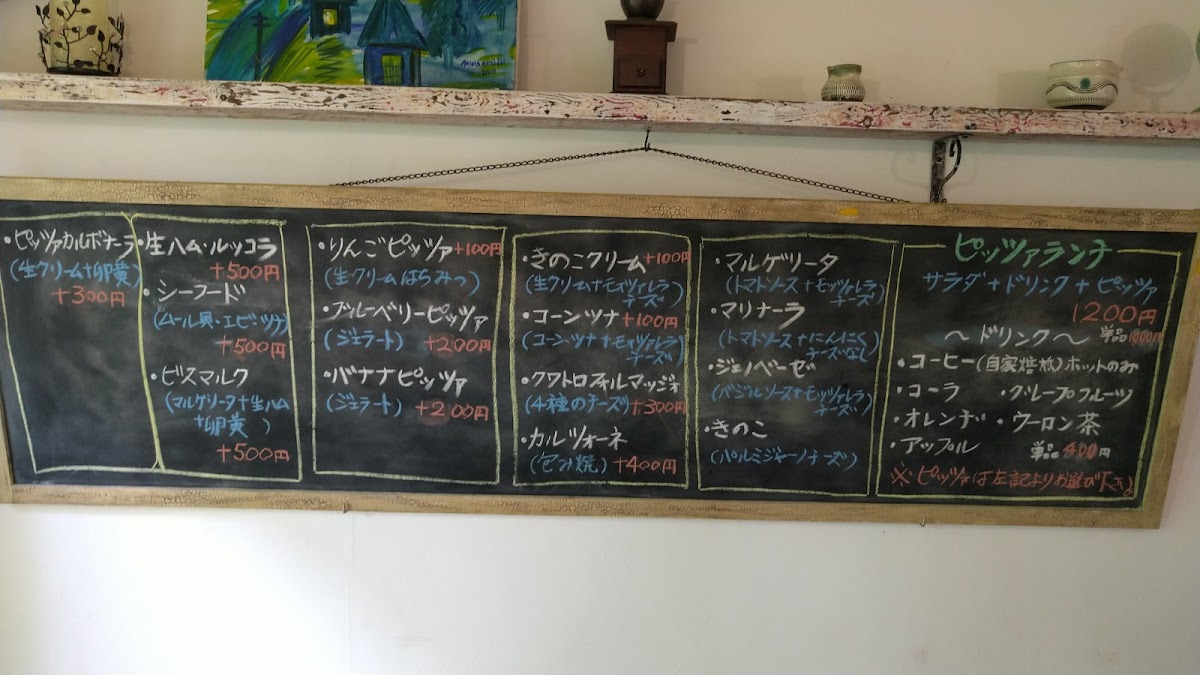 ・ピッツァカルボナーラ
(生クリーム+卵黄)
+300円
・生ハム・ルッコラ
+500円
・シーフード
(ムール貝・エビ・ツナ)
+500円
・ビスマルク
(マルゲリータ+生ハム
+卵黄 )
+500円
・りんごピッツァ+100円
(生クリームはちみつ)
・ブルーベリーピッツァ
(ジェラート) +200円
・バナナピッツァ
(ジェラート) +200円
・きのこクリーム+100円
(生クリーム+モッツァレラ
チーズ)
・コーンツナ+100円
(コーン・ツナ+モッツァレラ
チーズ)
・クワトロフォルマッジォ
(4種のチーズ)+300円
・カルツォーネ
(包み焼) +400円
・マルゲリータ
(トマトソース+モッツァレラ
チーズ)
・マリナーラ
(トマトソース+にんにく
チーズなし)
・ジェノベーゼ
(バジルソース+モッツァレラ
チーズ)
・きのこ
(パルミジャーノチーズ)
ピッツァランチ
サラダ+ドリンク+ピッツァ
1200円
単品1000円
〜ドリンク〜
・コーヒー(自家焙煎)ホットのみ
・コーラ ・グレープフルーツ
・オレンヂ ・ウーロン茶
・アップル 単品400円
※ピッツァは左記よりお選び下さい